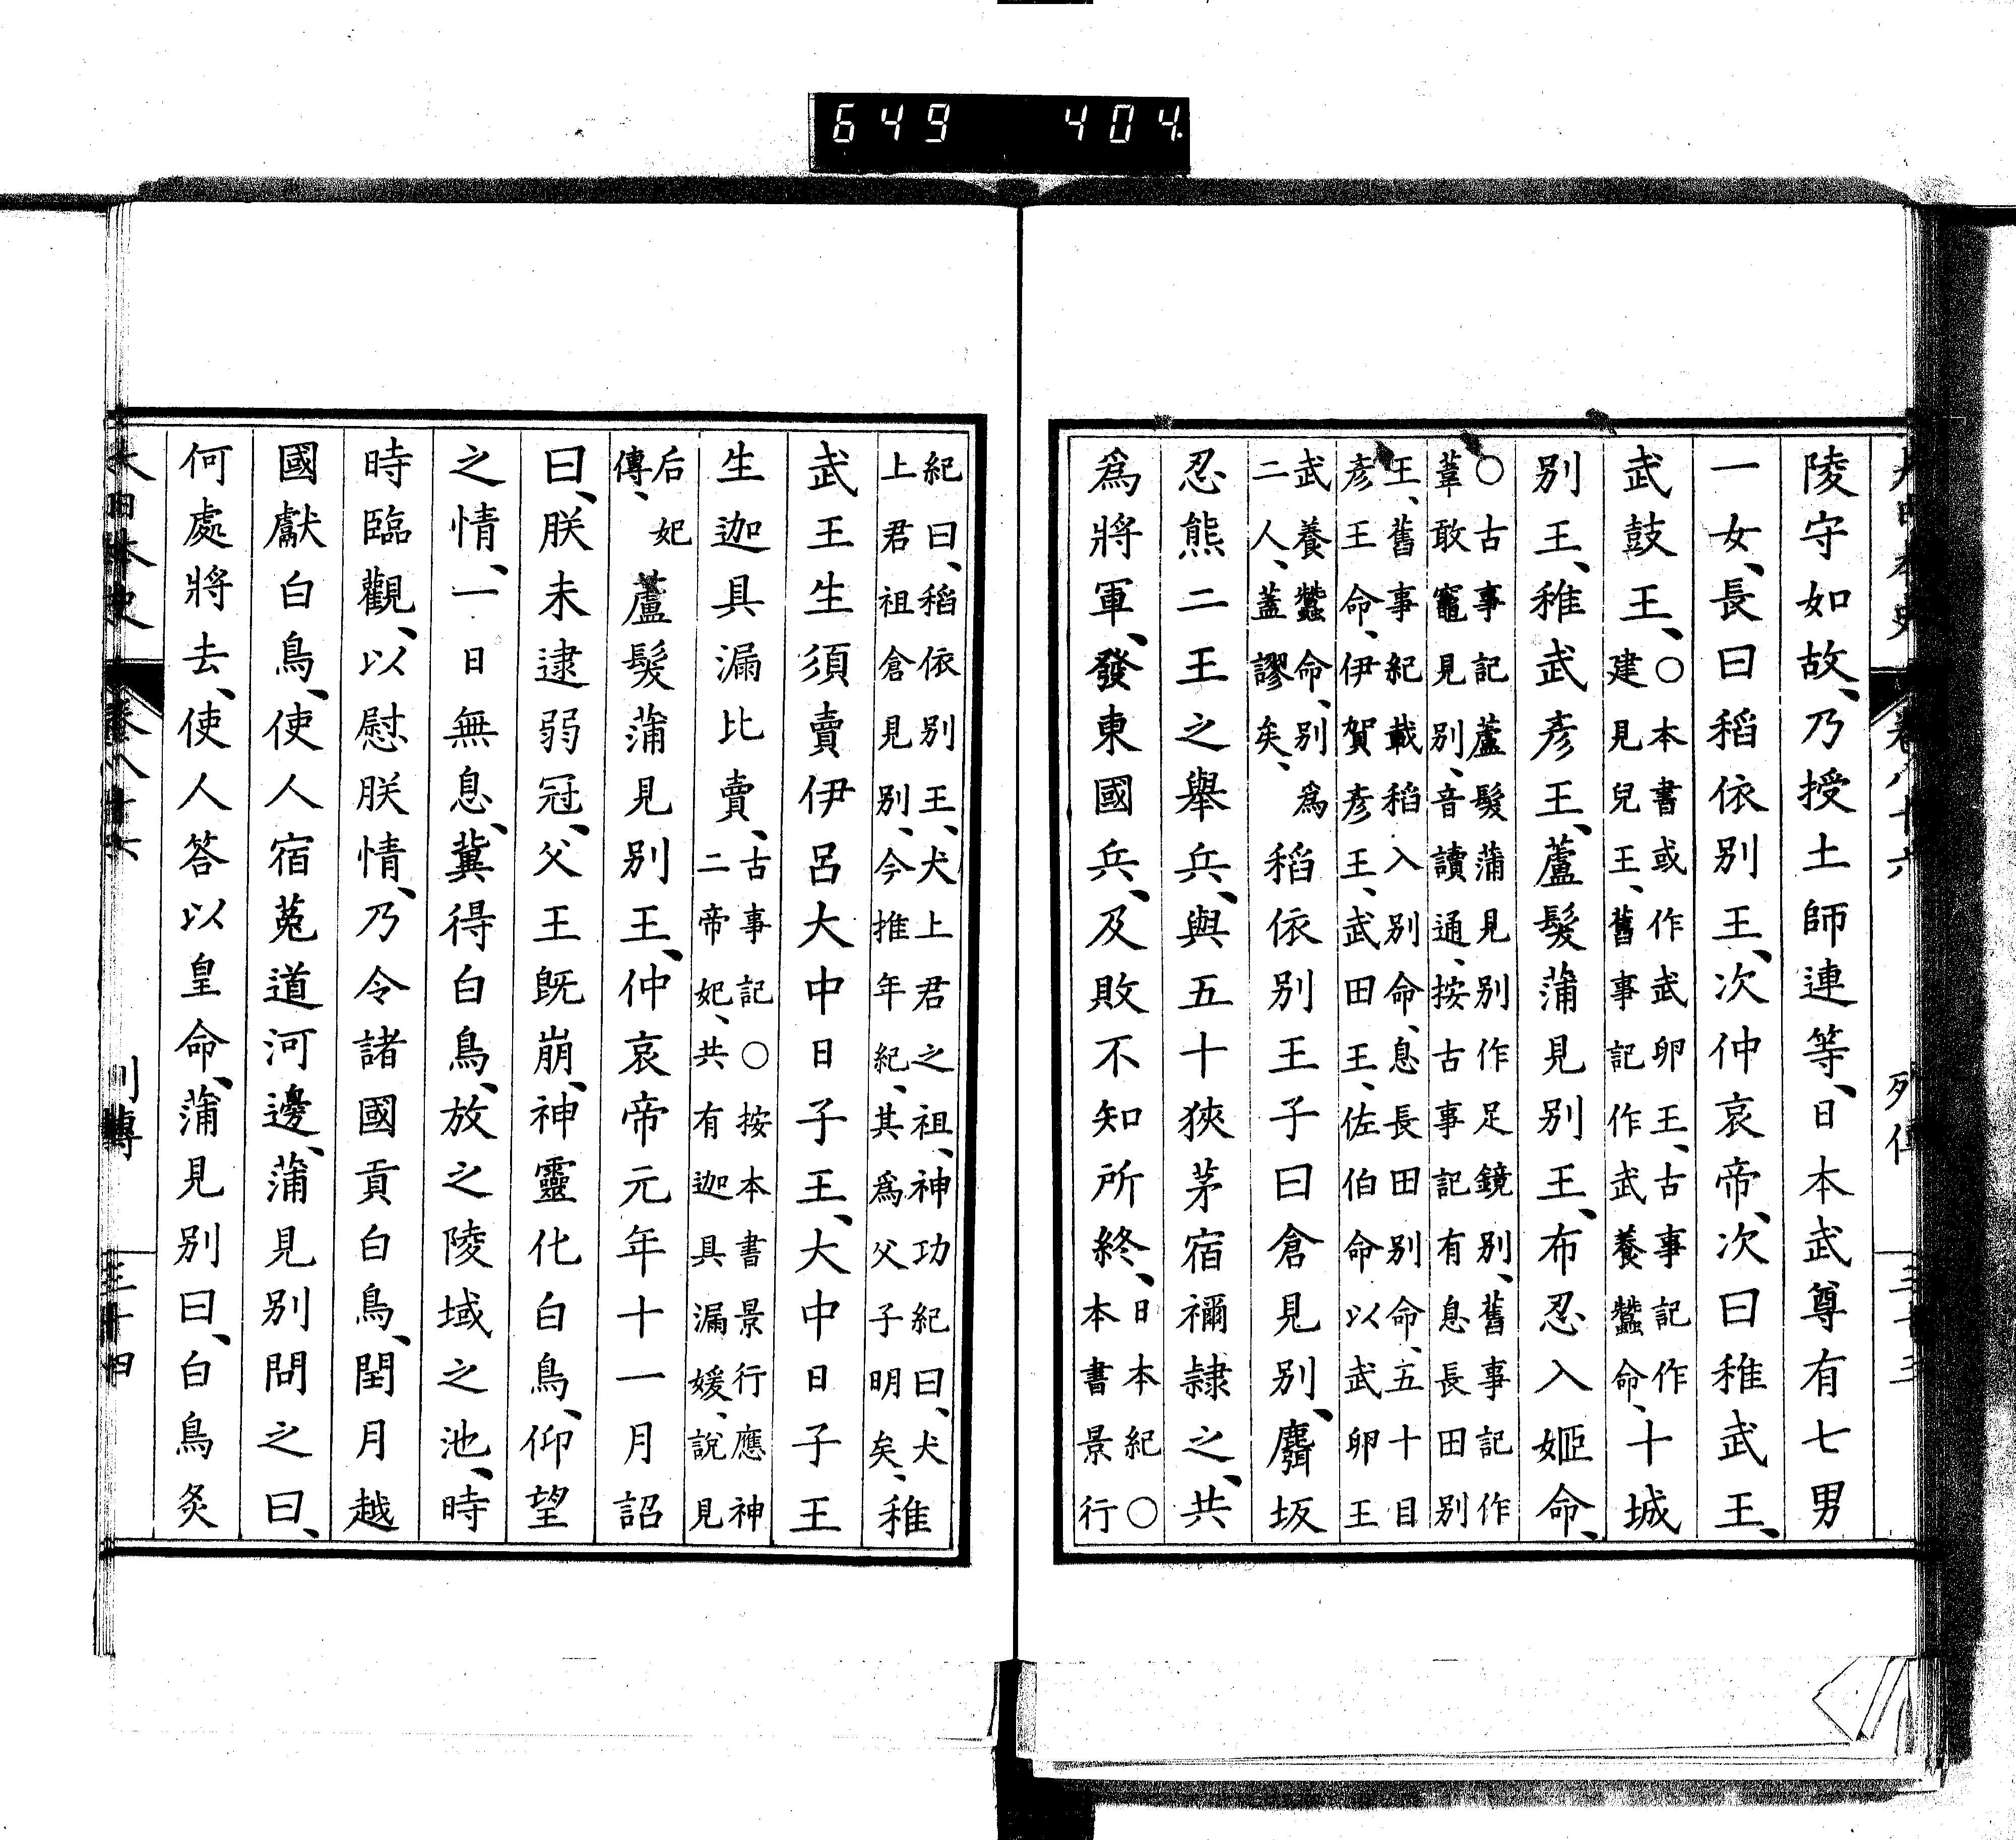 649 404.
大日本史 卷八十六 列傳 三十三
陵守如故、乃授土師連等、日本武尊有七男
一女、長曰稻依別王、次仲哀帝、次曰稚武王、
武鼓王、○本書或作武卵王、古事記作建見兒王、舊事記作武養蠶命、十城
別王、稚武彥王、蘆髮蒲見別王、布忍入姬命、
○古事記蘆髮蒲見別作足鏡別、舊事記作葦敢竈見別、音讀通、按古事記有息長田別
王、舊事紀載稻入別命、息長田別命、五十目彥王命、伊賀彥王、武田王、佐伯命以武卵王
武養蠶命、別爲二人、蓋謬矣、稻依別王子曰倉見別、麛坂
忍熊二王之舉兵、與五十狹茅宿禰隷之、共
爲將軍、發東國兵、及敗不知所終、日本紀○本書景行
紀曰、稻依別王、犬上君之祖、神功紀曰、犬上君祖倉見別、今推年紀、其爲父子明矣、稚
武王生須賣伊呂大中日子王、大中日子王
生迦具漏比賣、古事記○按本書景行應神二帝妃、共有迦具漏媛、說見
后妃傳、蘆髮蒲見別王、仲哀帝元年十一月詔
曰、朕未逮弱冠、父王既崩、神靈化白鳥、仰望
之情、一日無息、冀得白鳥、放之陵域之池、時
時臨觀、以慰朕情、乃令諸國貢白鳥、閏月越
國獻白鳥、使人宿菟道河邊、蒲見別問之曰、
何處將去、使人答以皇命、蒲見別曰、白鳥炙
大日本史 卷八十六 列傳 三十四